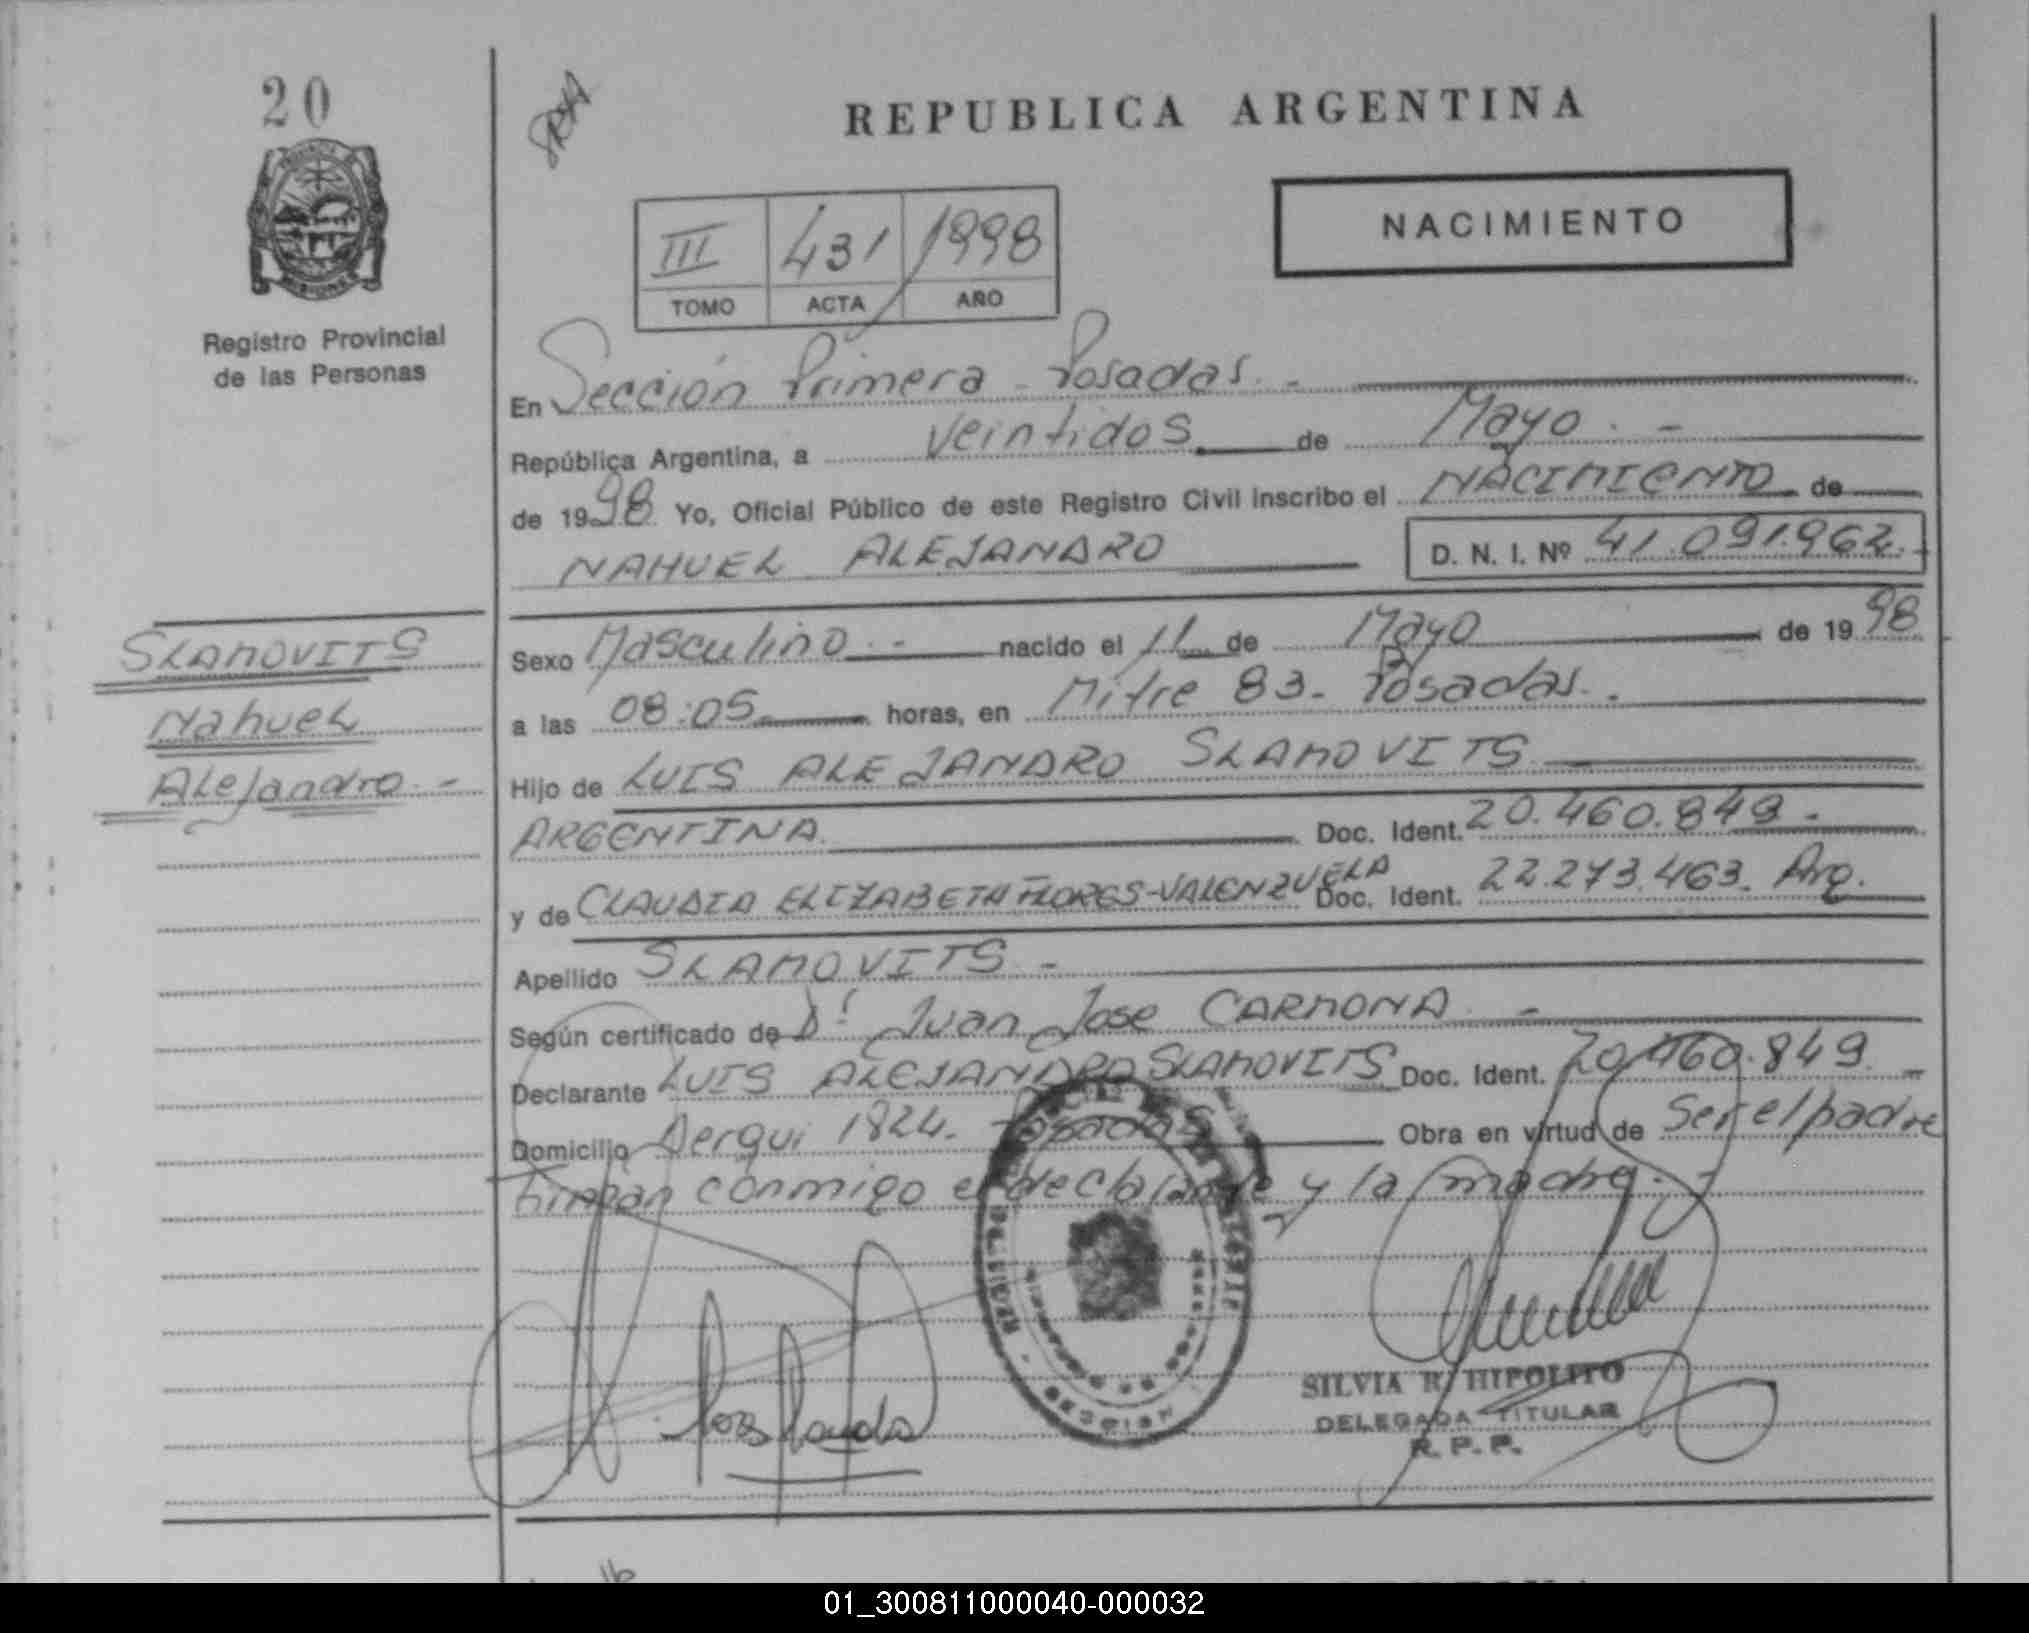 20
REPUBLICA ARGENTINA
NACIMIENTO
III 431 1998
TOMO ACTA AÑO
Registro Provincial
de las Personas
En Sección Primera - Posadas. -
República Argentina, a veintidos de Mayo. -
de 1998. Yo, Oficial Público de este Registro Civil inscribo el NACIMIENTO de
NAHUEL ALEJANDRO D. N. I. Nº 41.091.962.-
SLAMOVITS
Nahuel
Alejandro. -
Sexo Masculino. - nacido el 11 de Mayo de 1998.
a las 08:05 horas, en Mitre 83 - Posadas. .
Hijo de LUIS ALEJANDRO SLAMOVITS
ARGENTINA. Doc. Ident. 20.460.849.-
y de CLAUDIA ELIZABETH FLORES-VALENZUELA Doc. Ident. 22.273.463. Arg.
Apellido SLAMOVITS -
Según certificado de Dr. Juan Jose CARMONA. -
Declarante LUIS ALEJANDRO SLAMOVITS Doc. Ident. 20.460.849. -
Domicilio Derqui 1824. Posadas Obra en virtud de Ser el padre
firman conmigo el declarante y la madre. -
SILVIA R. HIPOLITO
DELEGADA TITULAR
R. P. P.
01_300811000040-000032